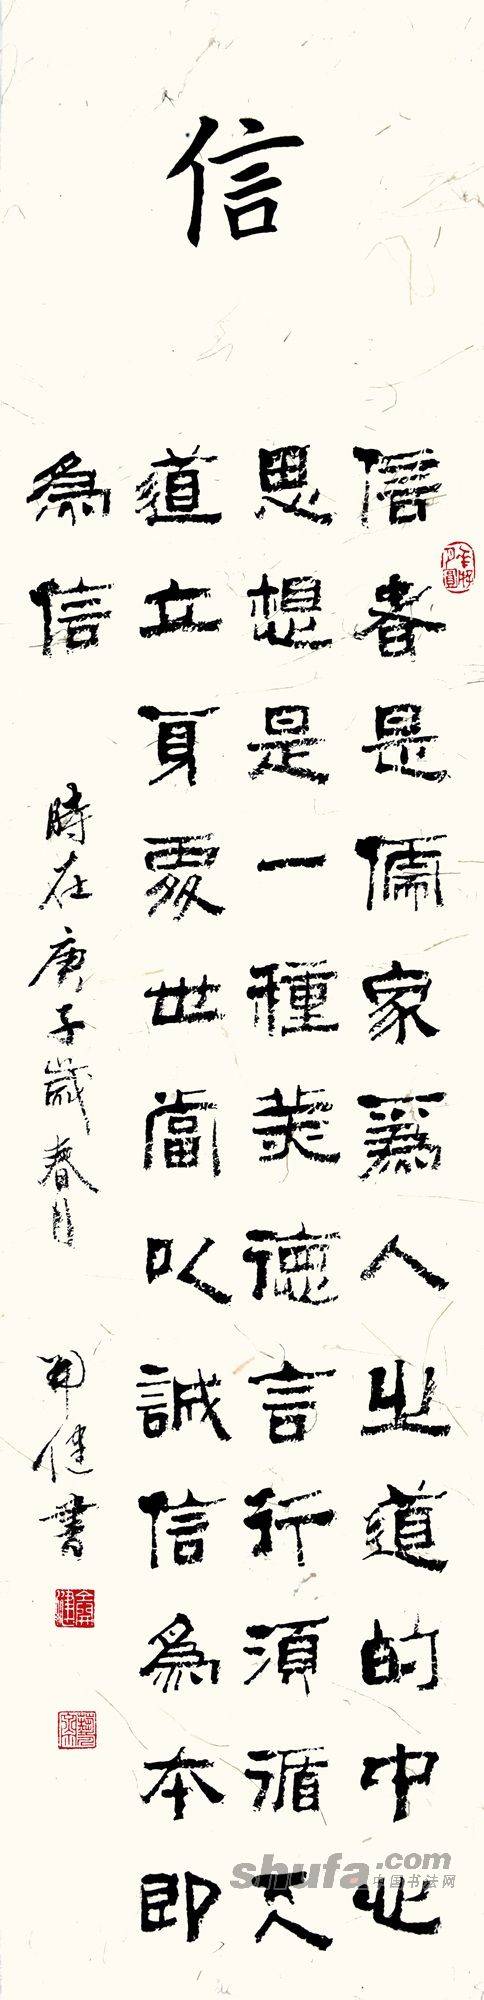 信
信者是儒家爲人之道的中心
思想是一種美德言行須循天
道立身處世當以誠信為本即
為信
時在庚子歲春月
健書
shufa.com
中国书法网